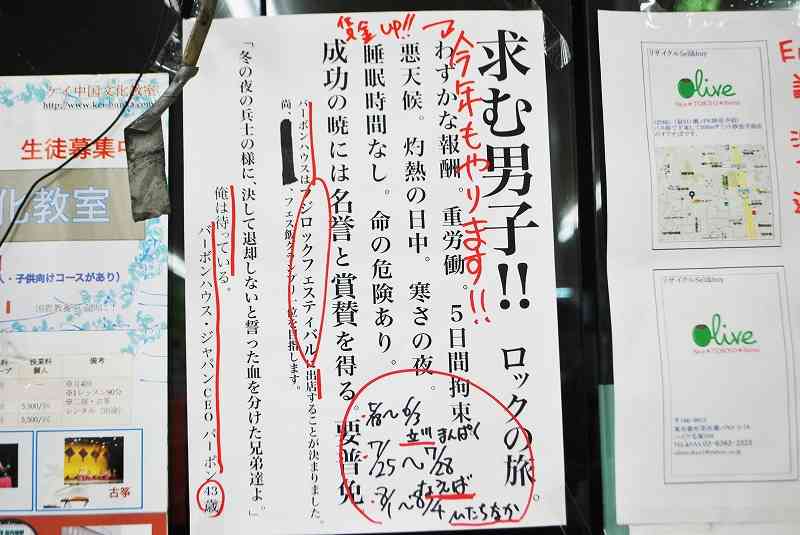 ケイ中国文化教室
生徒募集中
化教室
人・子供向けコースがあり)
授業料
個人
備考
※月4回
※1レッスン90分
5,500/回
古筝
賃金UP!!
今年もやります!!
求む男子!! ロックの旅。
わずかな報酬。重労働。5日間拘束
悪天候。灼熱の日中。寒さの夜。
睡眠時間なし。命の危険あり。
成功の暁には名誉と賞賛を得る。要普免
バーボンハウスはフジロックフェスティバルに出店することが決まりました。
尚、
、フェス飯グランプリ一位を目指します。
「冬の夜の兵士の様に、決して退却しないと誓った血を分けた兄弟達よ。」
俺は待っている。
バーボンハウス・ジャパンCEO バーボン 43歳
〜6/3
立川まんぱく
7/25〜7/28
なえば
8/1〜8/4
ひたちなか
リサイクル Sell&buy
Olive
リサイクル Sell&buy
Olive